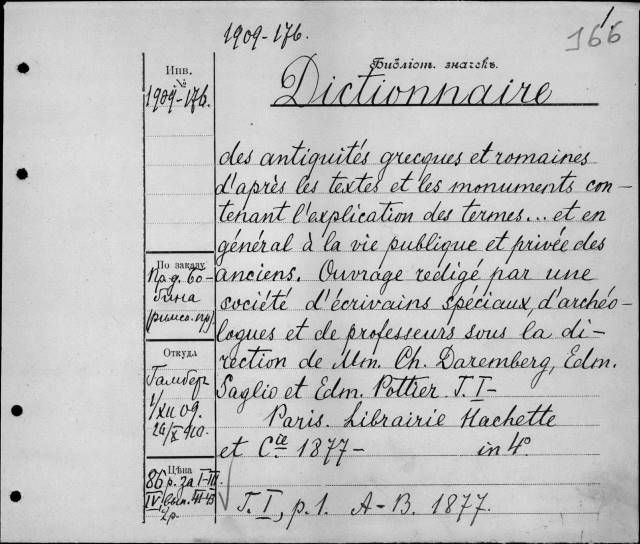 1909-176.
166
Инв.
№
1909-176.
Библіот. значекъ.
Dictionnaire
des antiquités grecques et romaines
d'après les textes et les monuments con-
tenant l'explication des termes... et en
général à la vie publique et privée des
anciens. Ouvrage rédigé par une
société d'écrivains spéciaux, d'archéo-
logues et de professeurs sous la di-
rection de Mm. Ch. Daremberg, Edm.
Saglio et Edm. Pottier. T. I-
Paris. Librairie Hachette
et Cie 1877- in 4°.
T. I, p. 1. A-B. 1877.
По заказу
Откуда
1/XII 09.
Цѣна
86 р. за I-III
IV
2 р.